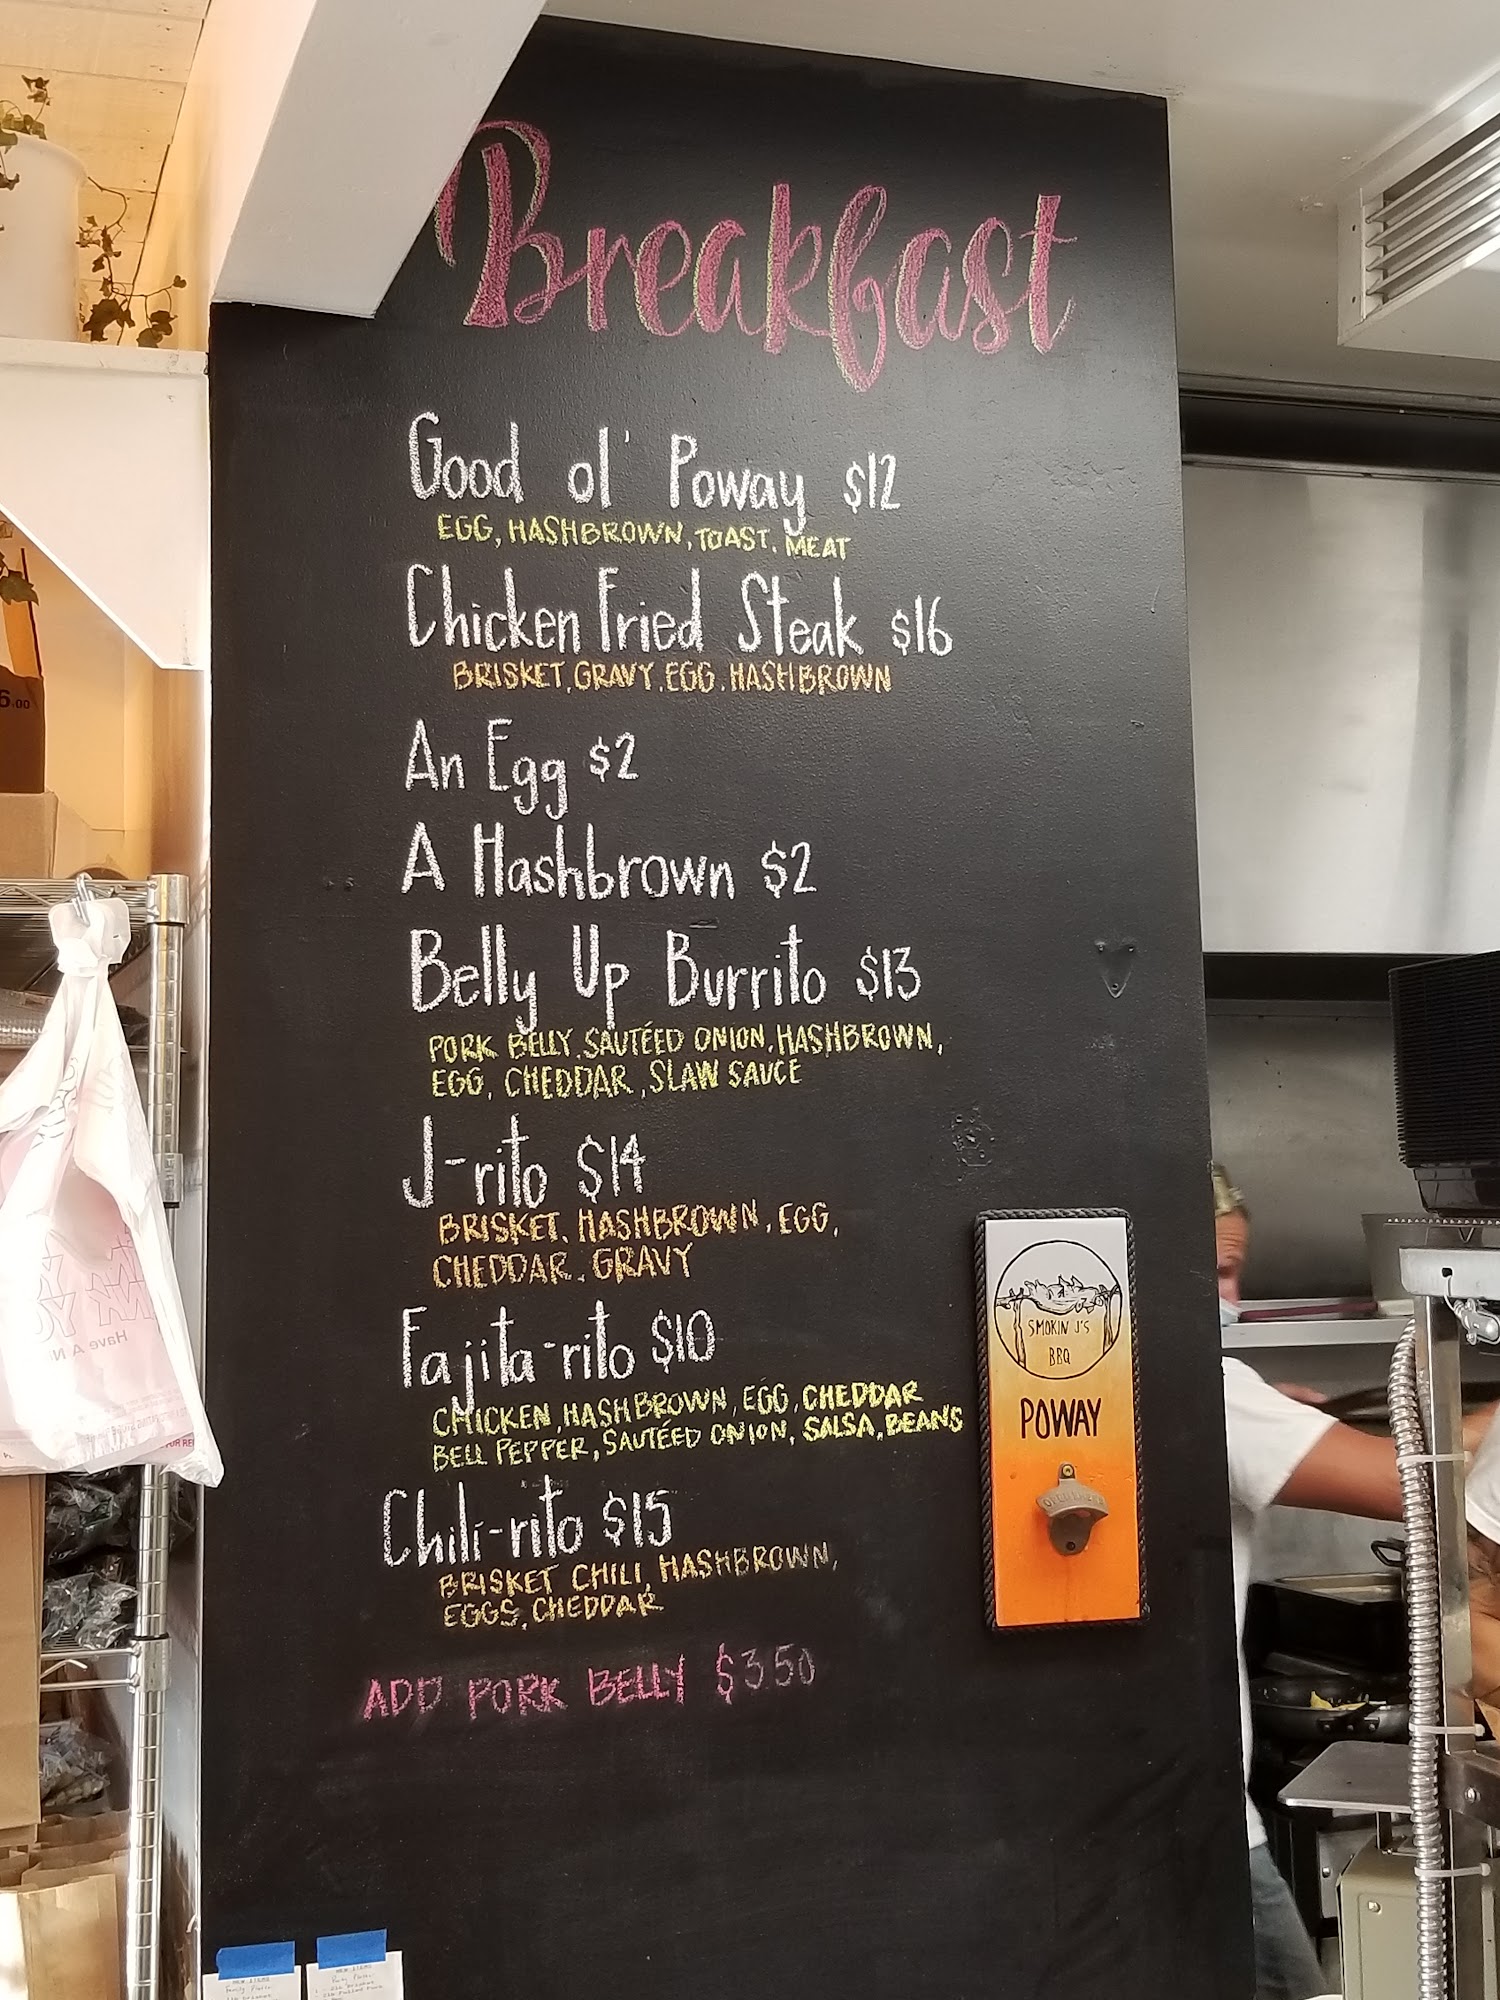 Breakfast
Good ol' Poway $12
EGG, HASHBROWN, TOAST, MEAT
Chicken Fried Steak $16
BRISKET, GRAVY, EGG, HASHBROWN
An Egg $2
A Hashbrown $2
Belly Up Burrito $13
PORK BELLY, SAUTÉED ONION, HASHBROWN,
EGG, CHEDDAR, SLAW SAUCE
J-rito $14
BRISKET, HASHBROWN, EGG,
CHEDDAR, GRAVY
Fajita-rito $10
CHICKEN, HASHBROWN, EGG, CHEDDAR
BELL PEPPER, SAUTÉED ONION, SALSA, BEANS
Chili-rito $15
BRISKET CHILI, HASHBROWN,
EGGS, CHEDDAR
ADD PORK BELLY $3.50
SMOKIN J'S
BBQ
POWAY
Have A N